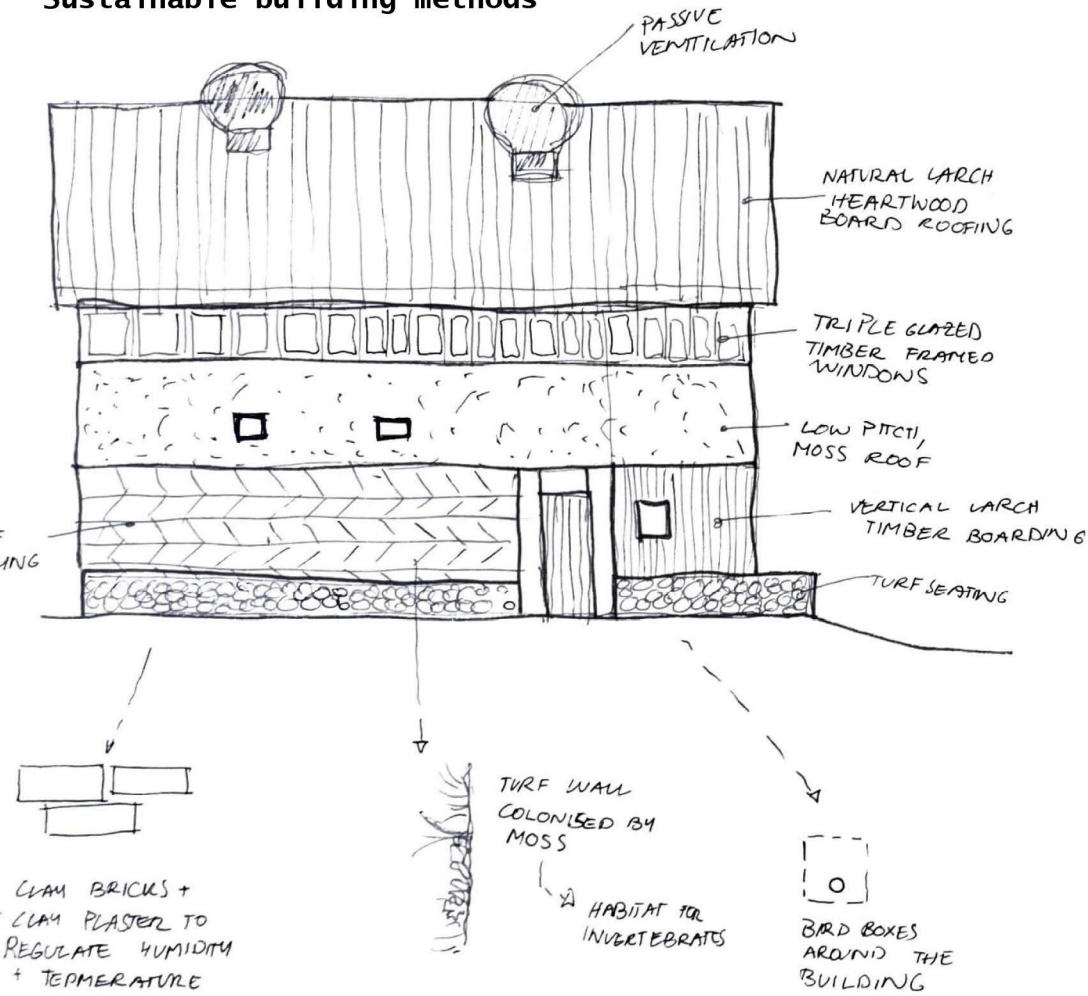 Sustainable building methods
PASSIVE
VENTILATION
NATURAL LARCH
HEARTWOOD
BOARD ROOFING
TRIPLE GLAZED
TIMBER FRAMED
WINDOWS
LOW PITCH,
MOSS ROOF
VERTICAL LARCH
TIMBER BOARDING
TURF SEATING
CLAY BRICKS +
CLAY PLASTER TO
REGULATE HUMIDITY
+ TEPMERATURE
TURF WALL
COLONISED BY
MOSS
HABITAT FOR
INVERTEBRATES
BIRD BOXES
AROUND THE
BUILDING